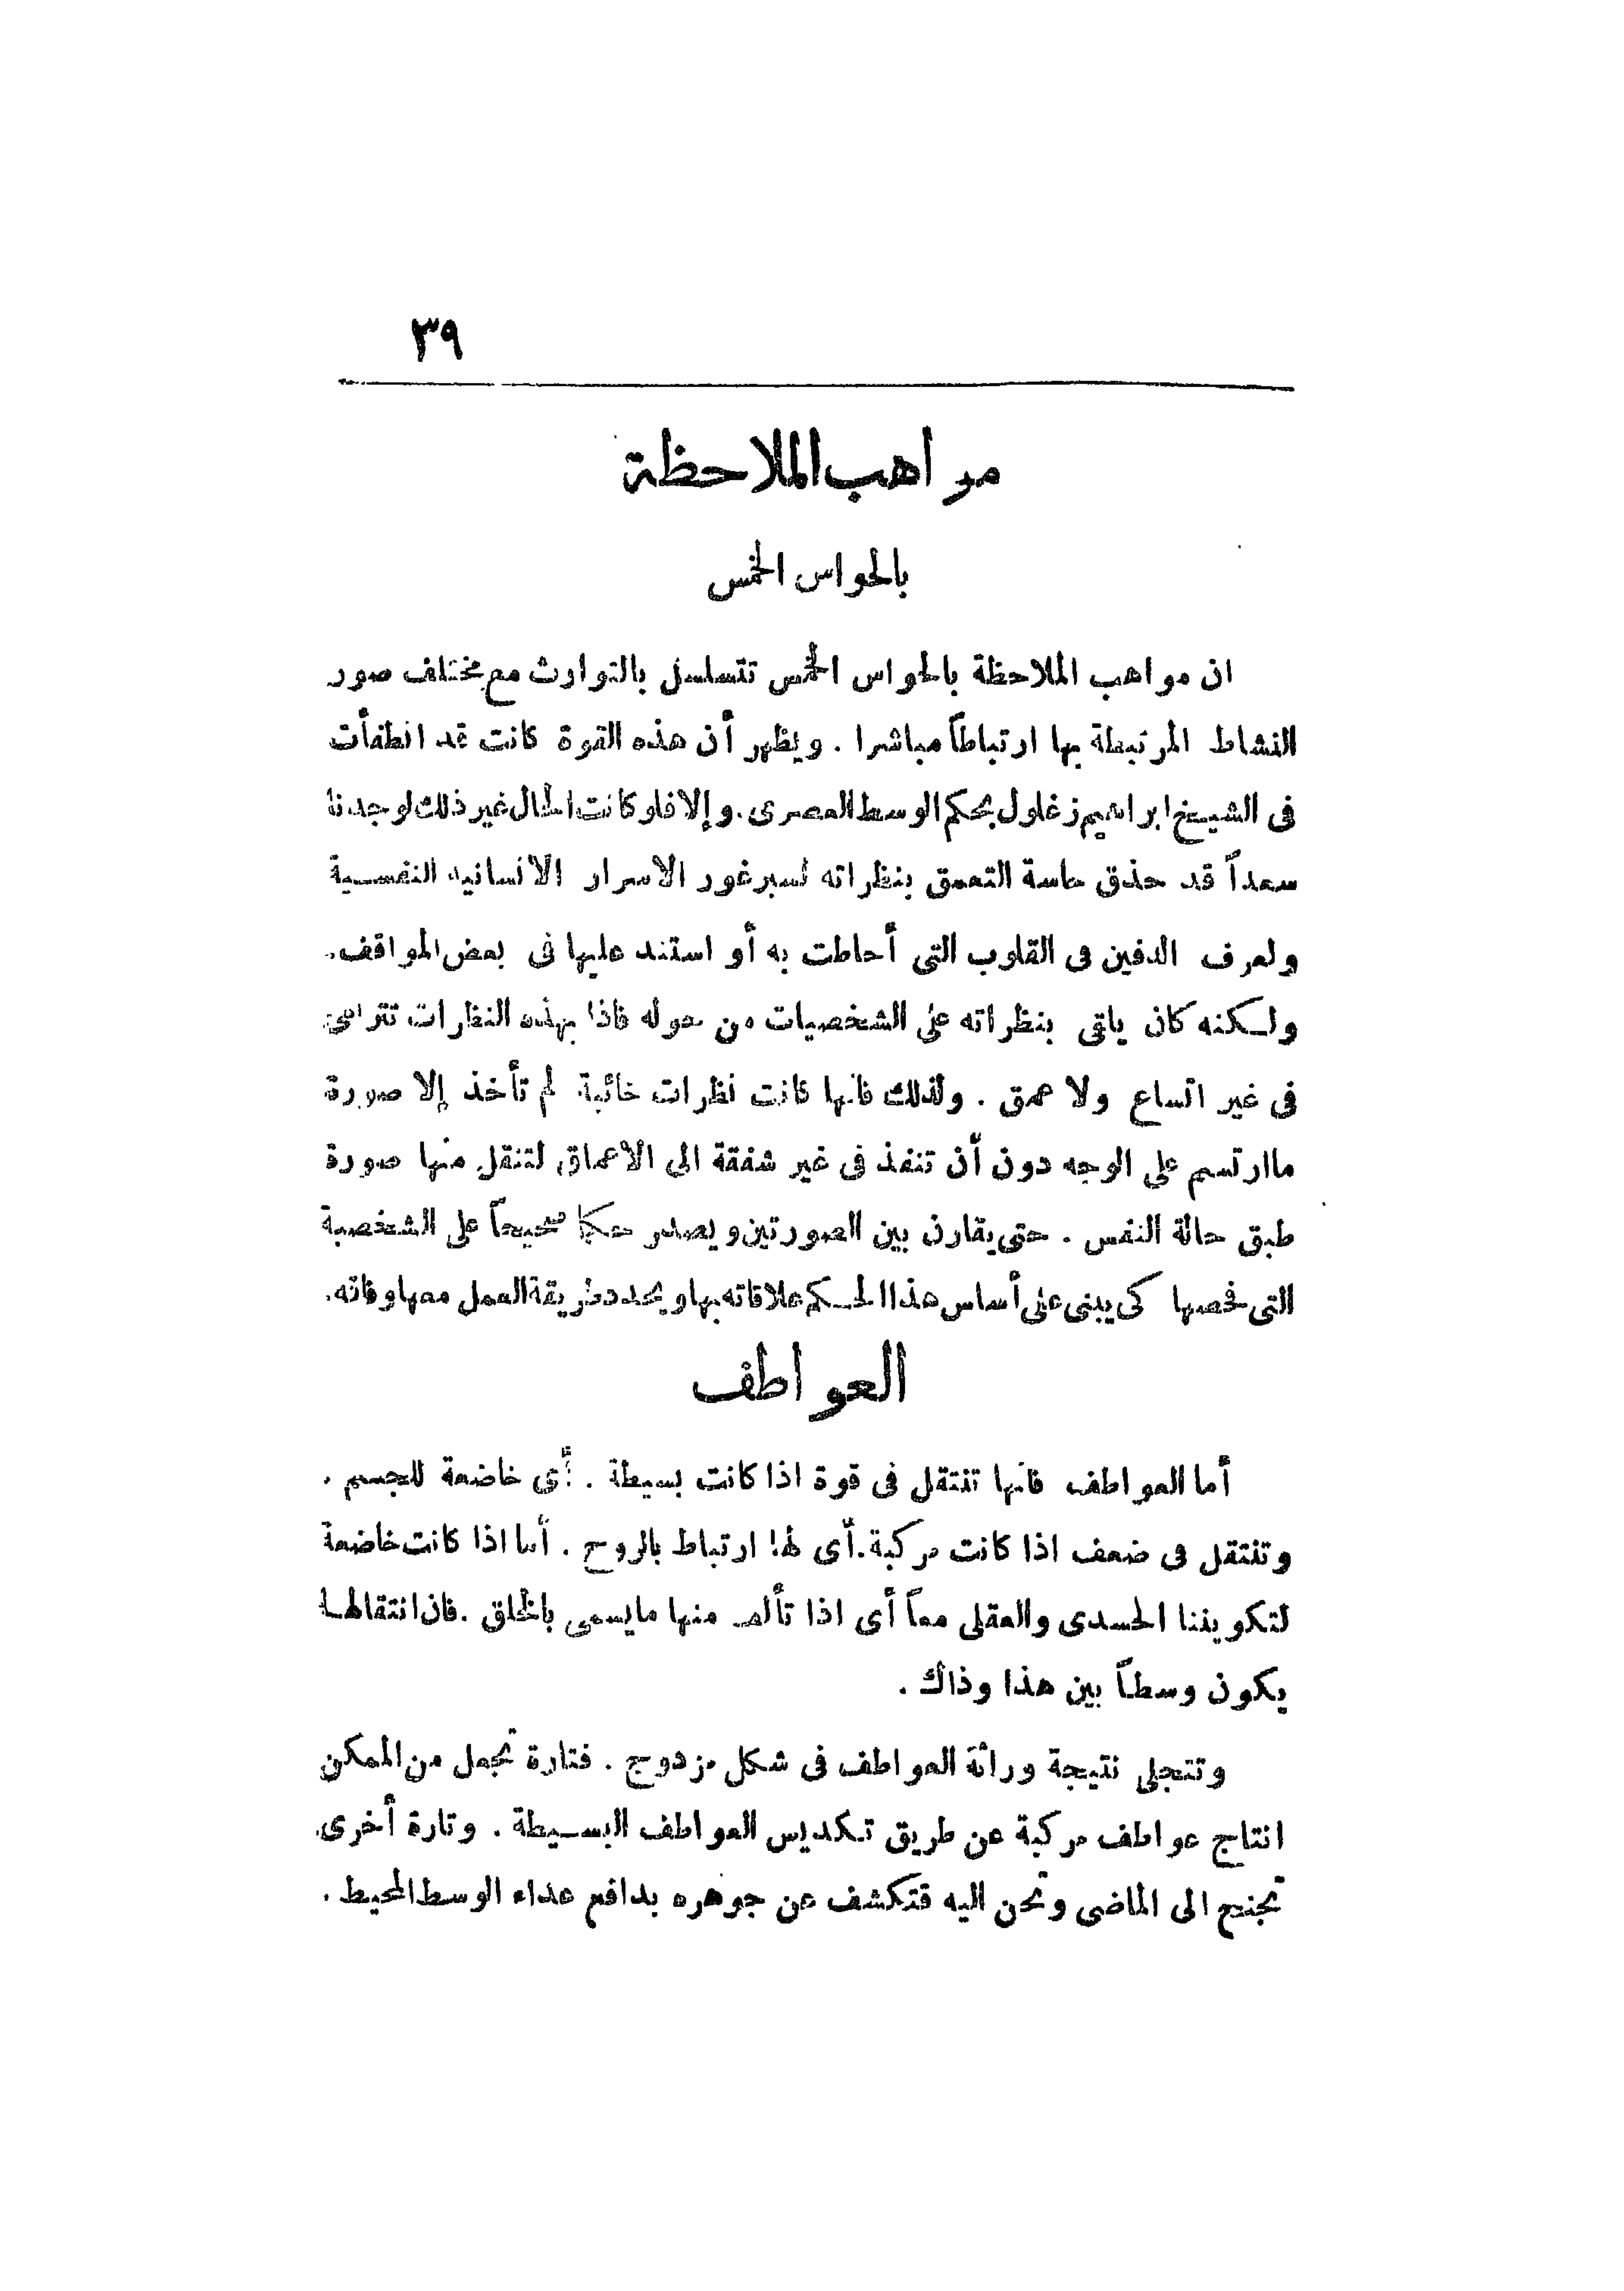 ٣٩
مواهب الملاحظة
بالحواس الخمس
ان مواهب الملاحظة بالحواس الخمس تتسلسل بالتوارث مع مختلف صور
النشاط المرتبطة بها ارتباطاً مباشرا . ويظهر أن هذه القوة كانت قد انطفأت
فى الشيخ ابراهيم زغلول بحكم الوسط المصرى . وإلا فلو كانت الحال غير ذلك لوجدنا
سعداً قد حذق حاسة التعمق بنظراته لسبر غور الاسرار الانسانيه النفسية
ولعرف الدفين فى القلوب التى أحاطت به أو استند عليها فى بعض المواقف .
ولكنه كان ياقى بنظراته على الشخصيات من حوله فاذا بهذه النظارات تترامى
فى غير اتساع ولا عمق . ولذلك فانها كانت نظرات خائبة لم تأخذ إلا صورة
ماارتسم على الوجه دون أن تنفذ فى غير شفقة الى الاعماق لتنقل منها صورة
طبق حالة النفس . حتى يقارن بين الصورتين ويصدر حكما صحيحاً على الشخصية
التى فحصها كى يبنى على أساس هذا الحكم علاقاته بها ويحدد طريقة العمل معها وقاته .
العواطف
أما العواطف فانها تنتقل فى قوة اذا كانت بسيطة . أى خاضعة للجسم .
وتنتقل فى ضعف اذا كانت مركبة . أى لها ارتباط بالروح . أما اذا كانت خاضعة
لتكويننا الجسدى والعقلى معاً أى اذا تألف منها مايسمى بالخلق . فان انتقالها
يكون وسطاً بين هذا وذاك .
وتتجلى نتيجة وراثة العواطف فى شكل مزدوج . فتارة تجعل من الممكن
انتاج عواطف مركبة عن طريق تكديس العواطف البسيطة . وتارة أخرى
تجنح الى الماضى وتحن اليه فتكشف عن جوهره بدافع عداء الوسط المحيط .